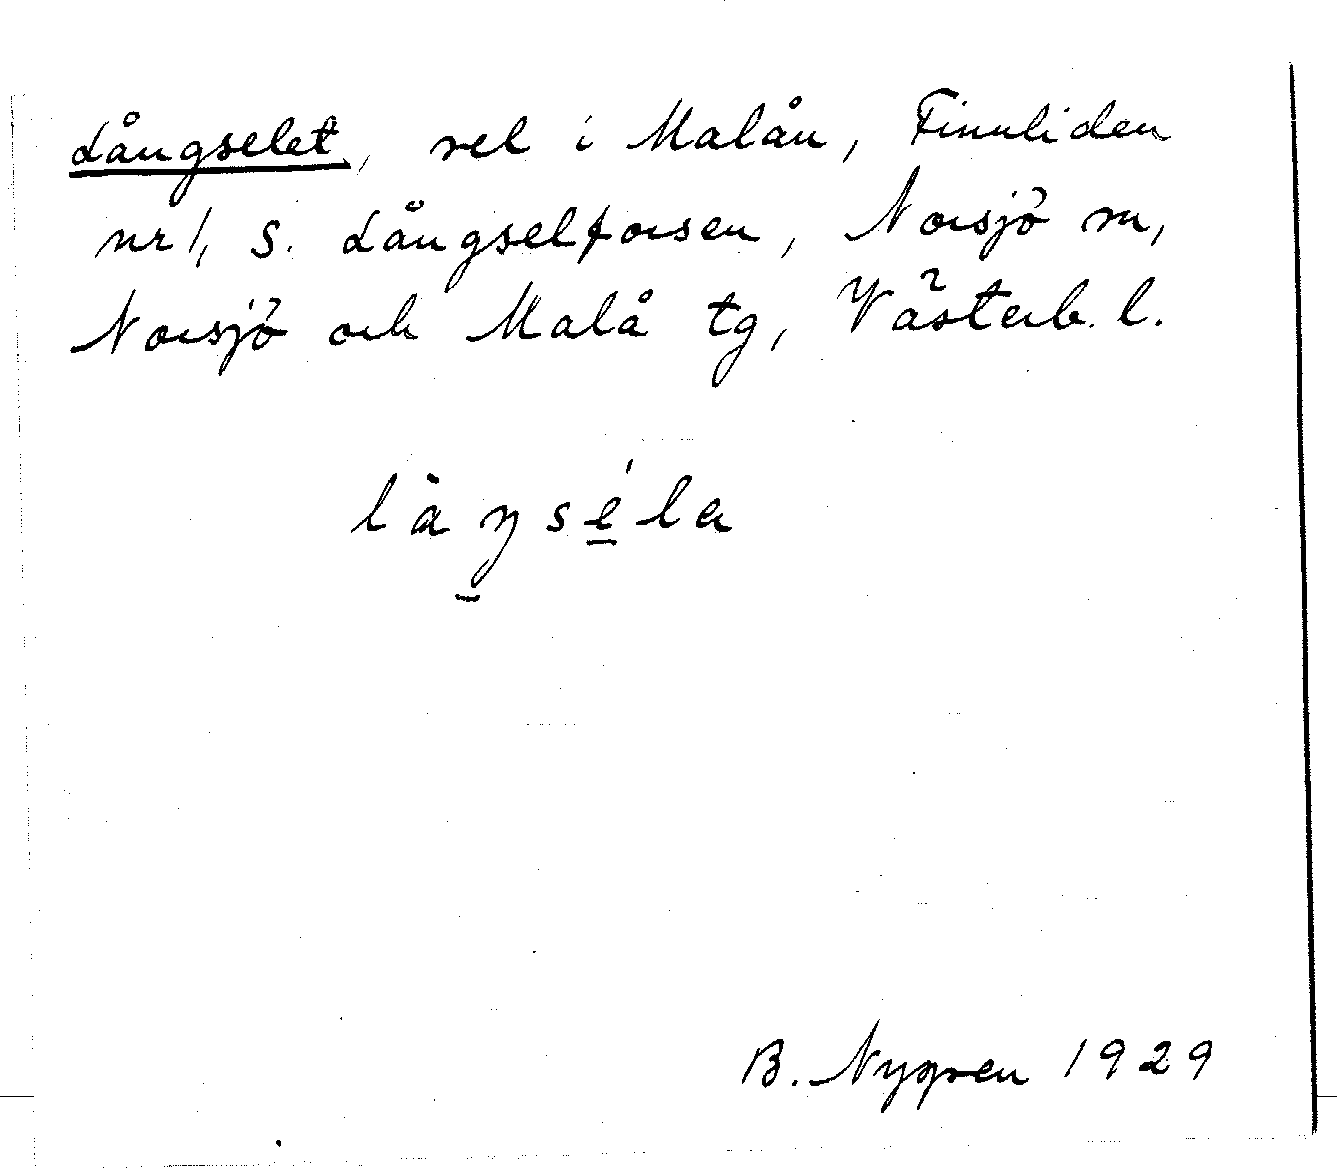 Långselet, sel i Malån, Finnliden
nr 1, S. Långselforsen, Norsjö sn,
Norsjö och Malå tg, Västerb. l.
làŋsé̱la
B. Nygren 1929